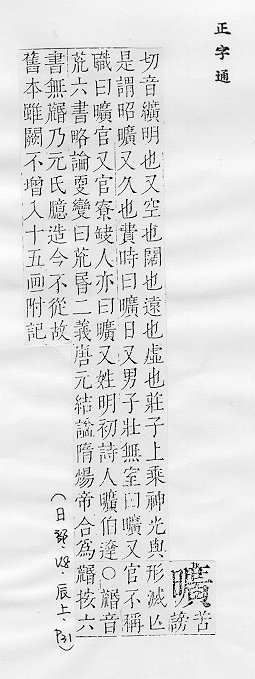 正字通
曠 苦謗
切音纊明也又空也闊也遠也虛也莊子上乘神光與形滅亾
是謂昭曠又久也費時曰曠日又男子壯無室曰曠又官不稱
職曰曠官又官寮缺人亦曰曠又姓明初詩人曠伯逵○音
荒六書略論變曰荒昬二義唐元結謚隋煬帝合為按六
書無乃元氏臆造今不從故
舊本雖闕不增入十五画附記
(日部.辰上.)